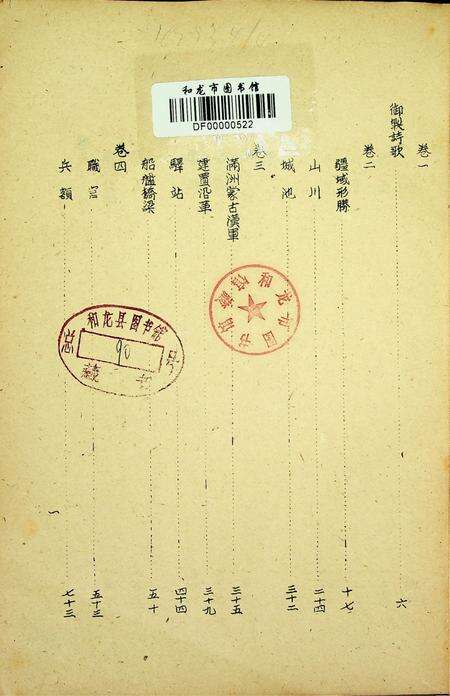 和龙市图书馆
DF00000522
卷一
御製詩歌 六
卷二
疆域形勝 十七
山川 二十四
城池 三十二
卷三
滿洲蒙古漢軍 三十五
建置沿革 三十九
驛站 四十四
船艦橋梁 五十
卷四
職官 五十三
兵額 七十三
一
和龙市图书馆
藏书馆
和龙县图书馆
总
号
藏书
90